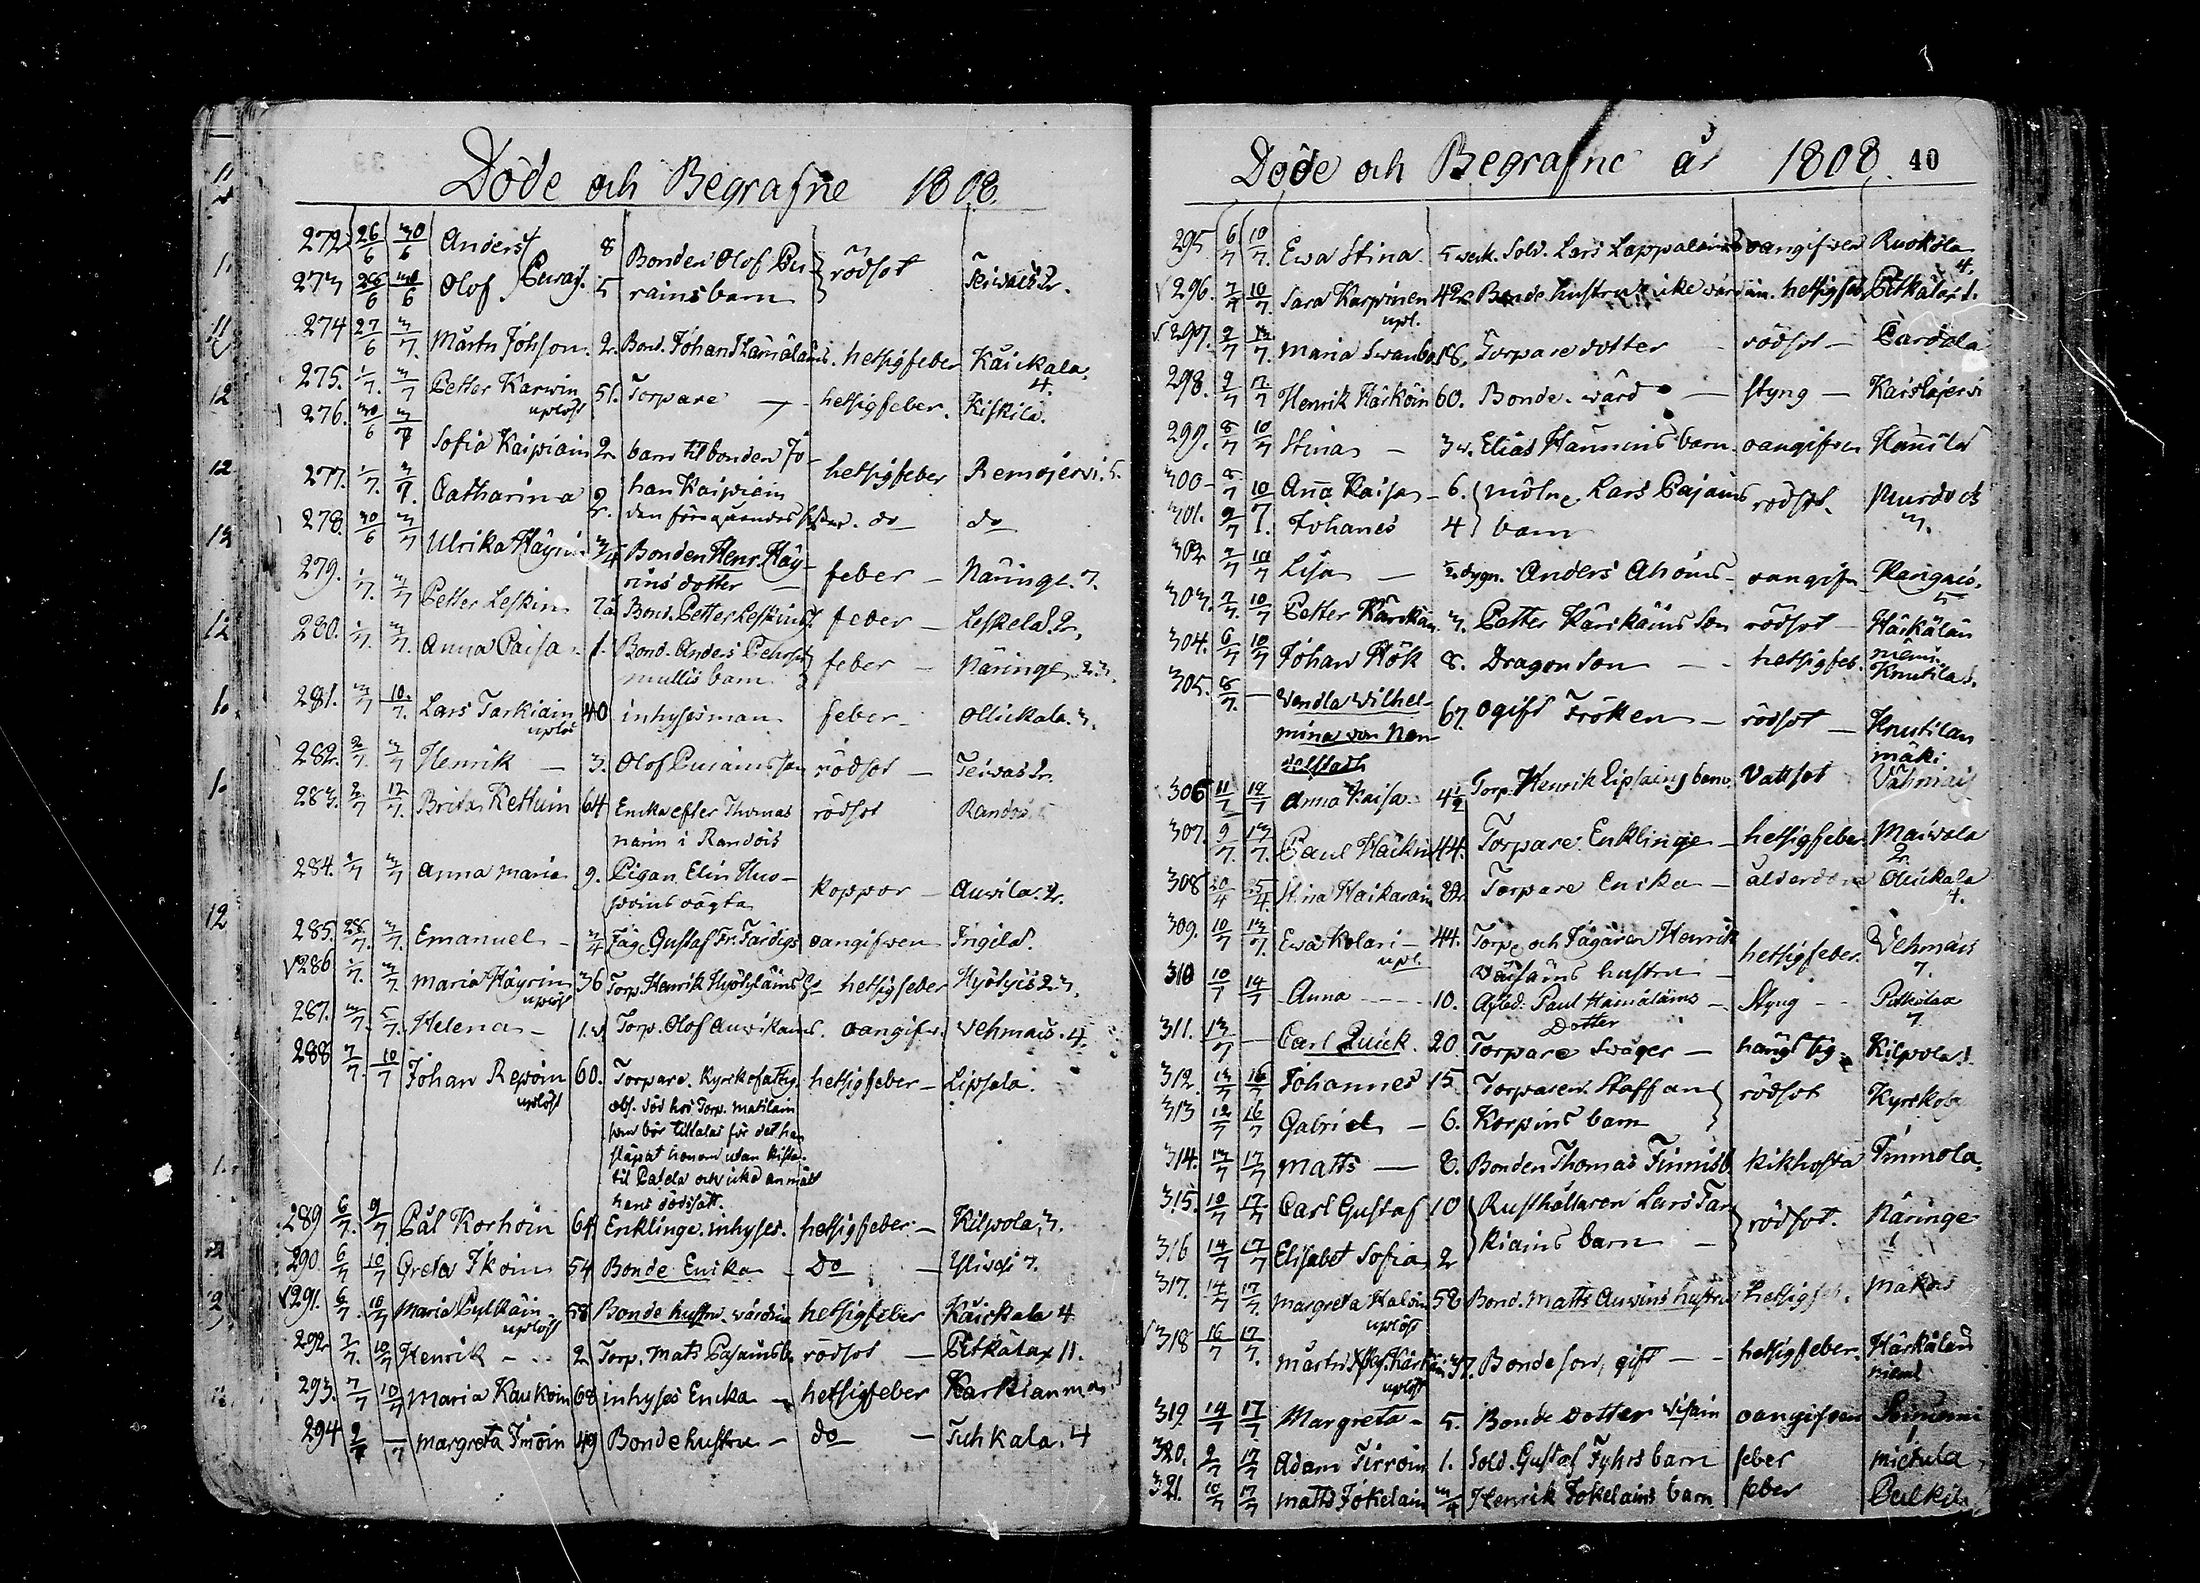 Döde och Begrafne 1808.
272 26/6 30/6 Anders 8 Bonden Olof Pu
273 26/6 30/6 Olof Puraj. 5 rains barn rödsot Teivais 2.
274 27/6 3/7. Mårtn Johsson. 2. Bond. Johan Hämäläins. hetsigfeber Käickala 4.
275. 1/7. 3/7 Petter Karwin uplöst 51. Torpare — hetsigfeber. Kiskila.
276. 30/6 3/7 Sofia Kaipiain 2 barn til bonden Jo-
han Kaipiain hetsigfeber Remojervi. 5.
277. 1/7. 3/7. Catharina 2 den föregående do do
278. 30/6 3/7 Ulrika Häyrin 3/4 Bonden Henr. Häy-
rins dotter feber — Näringe. 7.
279. 1/7. 3/7 Petter Leskin 7 Bond. Petter Leskins feber — Leskelä 2.
280. 1/7. 3/7. Anna Caisa 1. Bond. Anders Pehrss
mullis barn feber — Näringe
281. 3/7 10/7. Lars Tarkiain uplös 40 inhysesman feber — Ollickala. 3.
282. 2/7. 3/7 Henrik — 3. Olof Purains son rödsot — Teivais 2.
283. 2/7 12/7. Brita Kettuin 64 Enka efter Thomas
narin i Randois rödsot Randois
284. 1/7 3/7 Anna Maria 9. Pigan Elin Huo-
poins oägta koppor — Auvila. 2.
285. 28/7. 3/7. Emanuel — 3/4 Jäg. Gustaf Fr. Färdigs oangifven Ingilä.
286 1/7. 3/7. Maria Häyrin uplöst 36 Torp. Henrik Hyötyläins hetsigfeber Hyötyis
287. 3/7. 5/7. Helena — 1. w. Torp. Olof Auvikains. oangifv. Vehmais. 4.
288 7/7. 10/7 Johan Repoin uplöst 60. Torpare. Kyrkofattig hetsigfeber — Lipsala.
obs. död hos Torp. Matilain
som bör tilltalas för det han
släpat honom utan kista
til Patala och icke anmält
hans dödsfall.
289 6/7. 9/7 Pål Korhoin 64 Enklinge. inhyses. hetsigfeber. — Kilpola. 3.
290. 6/7 10/7 Greta Ikoin 54 Bonde Enka — Do —
291. 6/7. 10/7 Maria Pylkäin uplöst 58 Bonde hustru. värdin hetsigfeber Käickala 4
292 7/7. 10/7 Henrik — 2 Torp. Mats Pajains b. rödsot — Pitkälax 11.
293. 7/7 10/7 Maria Kaukoin 68 inhyses Enka — hetsigfeber
294 2/7 —/7 Margreta Imoin 49 Bonde hustru — do — Tuhkala. 4
Döde och Begrafne år 1808. 40
295. 6/7 10/7. Ewa Stina 5 veck. Sold. Lars Lappalains oangifven Ruokola 4.
296. 7/7 10/7. Sara Karpinen upl. 42 Bonde hustru, icke värdin. hetsigfeb Pitkälax 1.
297. 9/7 13/7. Maria Swanbo 18. Torpare dotter rödsot — Pardola
298. 9/7 17/7 Henrik Häsköin 60. Bonde. värd — styng — Kaislajervi
299. 8/7 10/7 Stina — 3 w. Elias Hannins barn oangifven Hannila
300 — 8/7 10/7 Anna Kaisa — 6. mölne. Lars Pajains rödsot. Murdois
301. 9/7 Johanes 4 barn 3.
302 7/7 10/7 Lisa — 2 dygn. Anders Ahoins — oangifv — Kangais. 5
303. 7/7. 10/7 Petter Kärikäin 3. Petter Kärikäins son rödsot — Häkälän
304. 6/7 10/7 Johan Hök 8. Dragon son — hetsigfeb. niemi. Knutila 1.
305. 8/7. — Vendla Wilhel-
mina von Nan
delstadt 67. ogift Fröken — rödsot — Knutilan mäki
306 11/7 12/7 Anna Kaisa 4 1/2 Torp. Henrik Lipsains barn Vattsot Vähmais
307. 9/7 13/7. Paul Häckin 44. Torpare. Enklinge — hetsigfeber. Maivola 2.
308 20/4 25/4. Stina Haikarain 82. Torpare Enka — ålderdom Ollickala 4.
309. 10/7 13/7. Ewa Kolari — upl. 44. Torp. och Jägaren Henrik
Väisäins hustru — hetsigfeber. Vehmais 7.
310 10/7 14/7 Anna — 10. Afled. Paul Hämäläins — Styng — Pitkälax
Dotter 7
311. 13/7 — Carl Quick. 20 Torpare Swåger — hängt sig. Kilpola 1.
312. 13/7 16/7 Johannes 15 Torparen Staffan rödsot Kyrckob
313 12/7 16/7 Gabriel — 6. Korpins barn
314. 13/7 17/7 Matts — 8. Bonden Thomas Finnis b. kikhosta Immola.
315. 10/7 17/7 Carl Gustaf 10 Rusthållaren Lars Tar
316 14/7 17/7 Elisabet Sofia 2 kiains barn — rödsot. Näringe 1
317. 14/7 17/7. Margreta Halvin uplöst 58 Bond. Matts Auvins hustru hetsigfeb. Mäkois
318 16/7 17/7. Mårtn Kärkäin uplöst 37. Bondeson, gift — hetsigfeber. Häkälän niemi
319 14/7 17/7 Margreta — 5. Bonde dotter oangifven
320. 2/7 17/7 Adam Tirroin 1. Sold. Gustaf Fyhrs barn feber
321. 10/7 17/7 Matts Jokelain 3/4 Henrik Jokelains barn feber